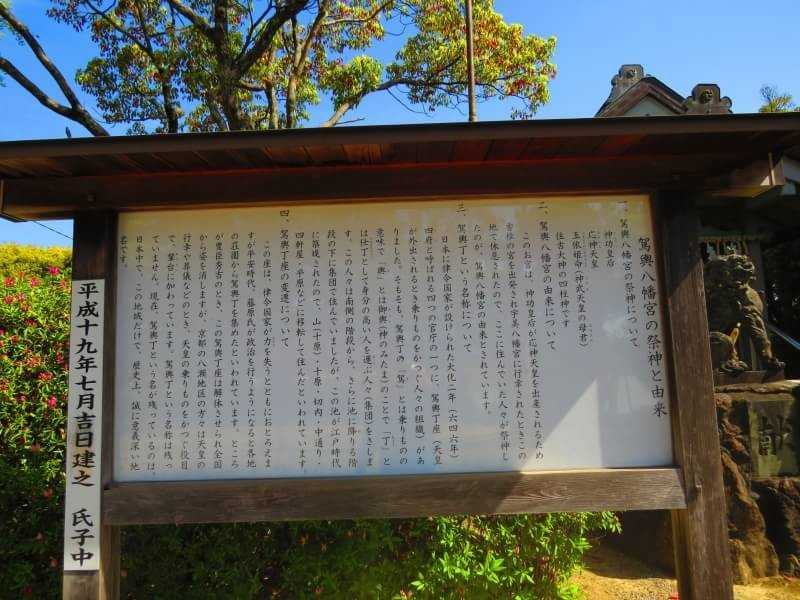 駕輿八幡宮の祭神と由来
一、駕輿八幡宮の祭神について
神功皇后
応神天皇
玉依姫命(神武天皇の母君)
住吉大神の四柱神です
二、駕輿八幡宮の由来について
このお宮は、神功皇后が応神天皇を出産されるため
香椎の宮を出発され宇美八幡宮に行幸されたときこの
地で休息されたので、ここに住んでいた人々が祭神し
たのが、駕輿八幡宮の由来とされています。
三、駕輿丁という名称について
日本に律令国家が設けられた大化二年(六四六年)
四府と呼ばれる四つの官庁の一つに、駕輿丁座(天皇
が外出されるとき乗りものをかつぐ人々の組織)があ
りました。そもそも、駕輿丁の「駕」とは乗りものの
意味で「輿」とは御輿(神のみたま)のことで「丁」と
は仕丁として身分の高い人を運ぶ人々(集団)をさしま
す。この人々は南側の階段から、さらに池に降りる階
段の下に集団で住んでいましたが、この池が江戸時代
に築堤されたので、山(十原)・十原・切内・中通り・
四軒屋・平原などに移転して住んだといわれています。
四、駕輿丁座の変遷について
この座は、律令国家が力を失うとともにおとろえま
すが平安時代、藤原氏が政治を行うようになると各地
の荘園から駕輿丁を集めたといわれています。ところ
が豊臣秀吉のとき、この駕輿丁座は解体させられ全国
から姿を消しますが、京都の八瀬地区の方々は天皇の
行幸や葬儀などのとき、天皇の乗りものをかつぐ役目
で、輦台にかわっています。駕輿丁という名称は残っ
ていません。現在、駕輿丁という名が残っているのは、
日本中で、この地域だけで、歴史上、誠に意義深い地
名です。
平成十九年七月吉日建之 氏子中
献